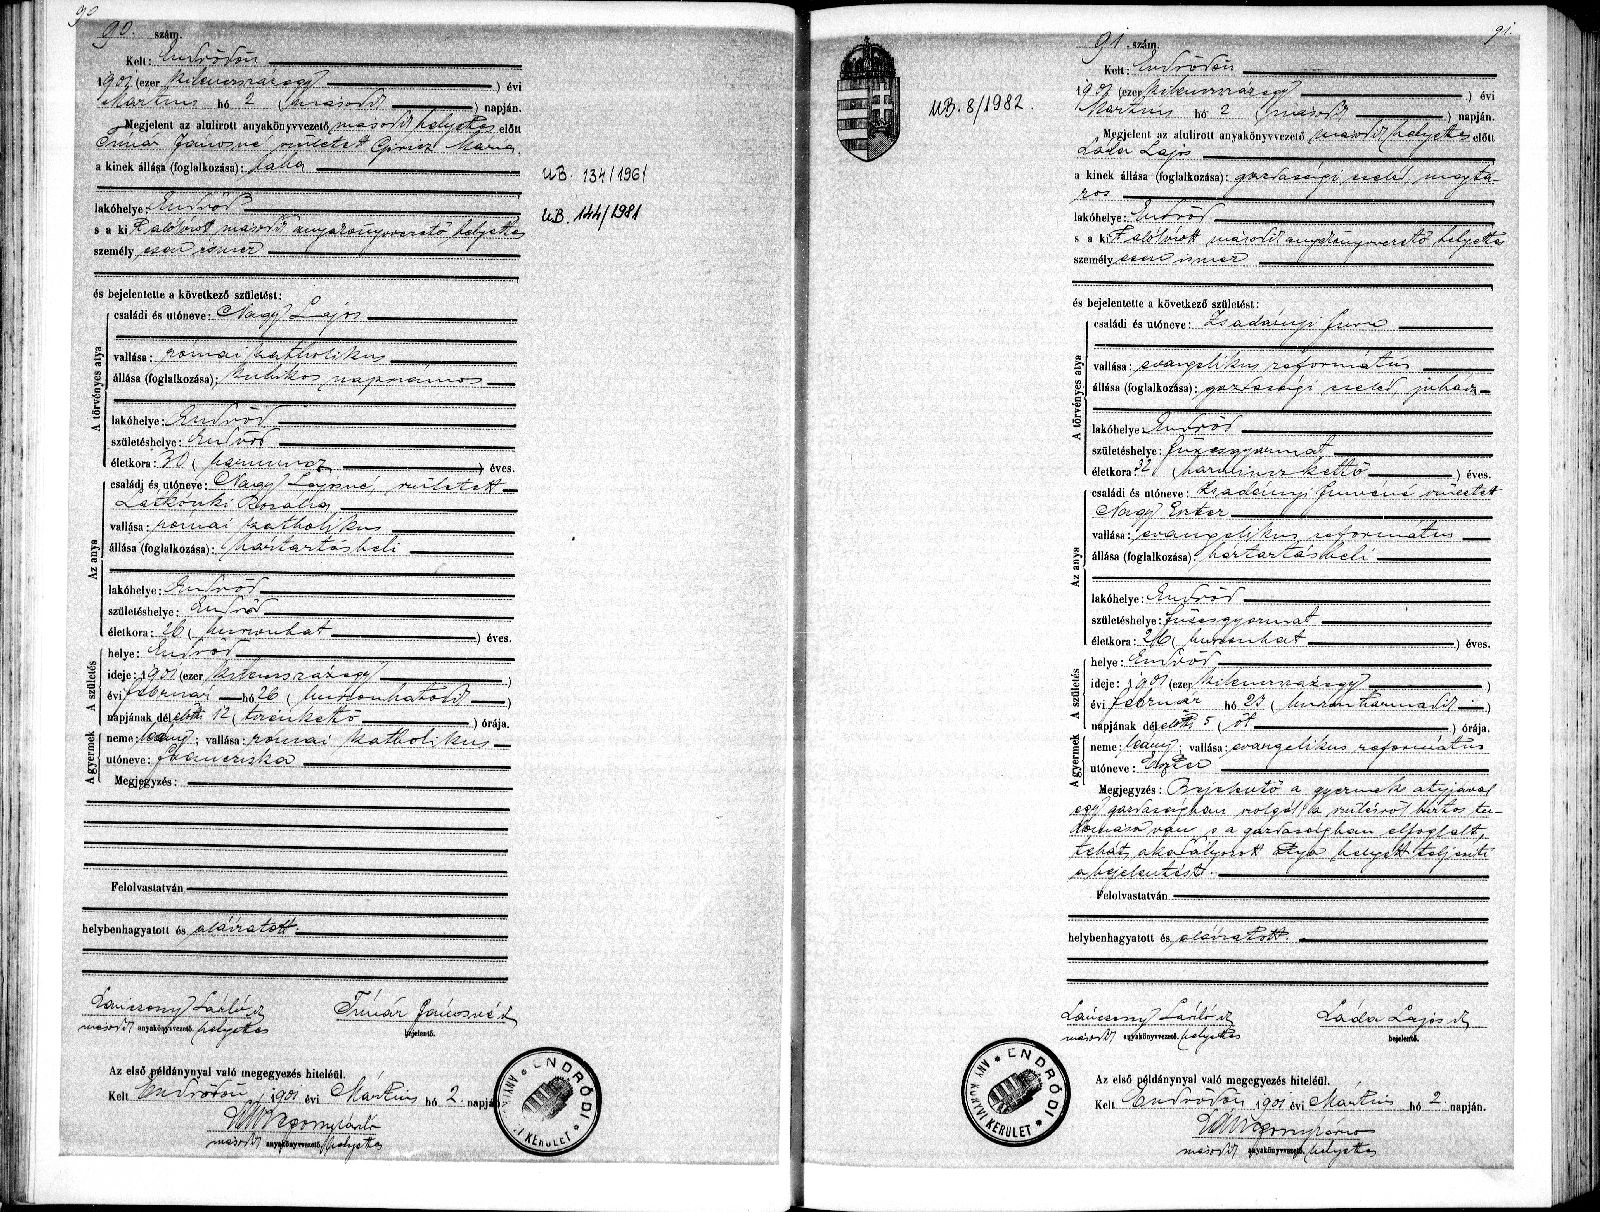 90
90. szám.
Kelt: Endrődön
1901 (ezer kilenczszázegy) évi
Mártius hó 2 (második) napján.
Megjelent az alulirott anyakönyvvezető második helyettes előtt
Tímár Jánosné született Mária,
a kinek állása (foglalkozása): bába
lakóhelye: Endrőd
s a kit alólírott második anyakönyvvezető helyettes
személyesen ismer
és bejelentette a következő születést:
A törvényes atya
családi és utóneve: Nagy Lajos
vallása: római katholikus
állása (foglalkozása): kubikos, napszámos
lakóhelye: Endrőd
születéshelye: Endrőd
életkora: 30 (harmincz) éves.
Az anya
családi és utóneve: Nagy Lajosné, született
Rozália
vallása: római katholikus
állása (foglalkozása): háztartásbeli
lakóhelye: Endrőd
születéshelye: Endrőd
életkora: 26 (huszonhat) éves.
A születés
helye: Endrőd
ideje: 1901 (ezer kilenczszázegy)
évi február hó 26 (huszonhatodik)
napjának délelőtt 12 (tizenkettő) órája.
A gyermek
neme: leány; vallása: római katholikus
utóneve: Francziska
Megjegyzés:
Felolvastatván
helybenhagyatott és aláíratott.
László
második anyakönyvvezető helyettes
Tímár Jánosné
bejelentő.
Az első példánynyal való megegyezés hiteléül.
Kelt Endrődön 1901 évi Mártius hó 2. napján
második anyakönyvvezető helyettes
ENDRŐDI ANYAKÖNYVI KERÜLET
UB. 134/1961
UB. 144/1981
91.
91 szám.
UB. 8/1982.
Kelt: Endrődön
1901 (ezer kilenczszázegy) évi
Mártius hó 2 (második) napján.
Megjelent az alulirott anyakönyvvezető második helyettes előtt
Láda Lajos
a kinek állása (foglalkozása): gazdasági cseléd, magtá-
ros
lakóhelye: Endrőd
s a kit alólírott második anyakönyvvezető helyettes
személyesen ismer
és bejelentette a következő születést:
A törvényes atya
családi és utóneve: Zsadányi Imre
vallása: evangelikus református
állása (foglalkozása): gazdasági cseléd, juhász
lakóhelye: Endrőd
születéshelye: Füzesgyarmat
életkora: 32 (harminczkettő) éves.
Az anya
családi és utóneve: Zsadányi Imréné született
Nagy Eszter
vallása: evangelikus református
állása (foglalkozása): háztartásbeli
lakóhelye: Endrőd
születéshelye: Füzesgyarmat
életkora: 26 (huszonhat) éves.
A születés
helye: Endrőd
ideje: 1901 (ezer kilenczszázegy)
évi február hó 23 (huszonharmadik)
napjának délelőtt 5 (öt) órája.
A gyermek
neme: leány; vallása: evangelikus református
utóneve: Eszter
Megjegyzés: Bejelentő a gyermek atyjával
egy gazdaságban szolgál, a szülésről biztos tu-
domása van s a gazdaságban elfoglalt,
tehát akadályozott atya helyett teljesíti
a bejelentést.
Felolvastatván
helybenhagyatott és aláíratott.
László
második anyakönyvvezető helyettes
Láda Lajos
bejelentő.
Az első példánynyal való megegyezés hiteléül.
Kelt Endrődön 1901 évi Mártius hó 2. napján.
második anyakönyvvezető helyettes
ENDRŐDI ANYAKÖNYVI KERÜLET